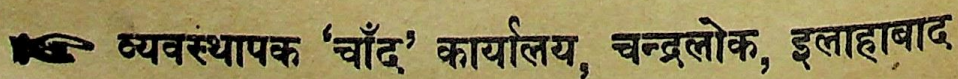 ☛ व्यवस्थापक ‘चाँद’ कार्यालय, चन्द्रलोक, इलाहाबाद